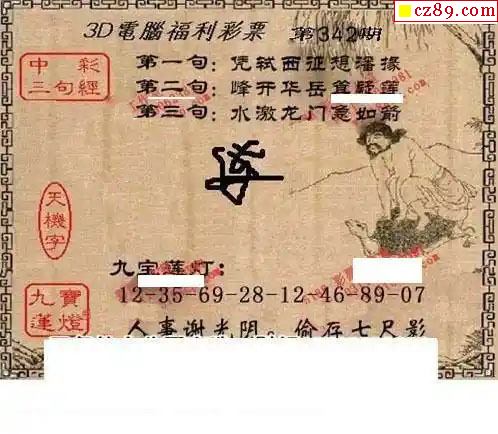 cz89.com
3D電腦福利彩票 第342期
中彩三句經
第一句：凭轼西征想潘掾
第二句：峰开华岳
第三句：水激龙门急如箭
天機字
九宝莲灯：
九寶蓮燈
12-35-69-28-12 46-89-07
人事谢光阴。偷存七尺影